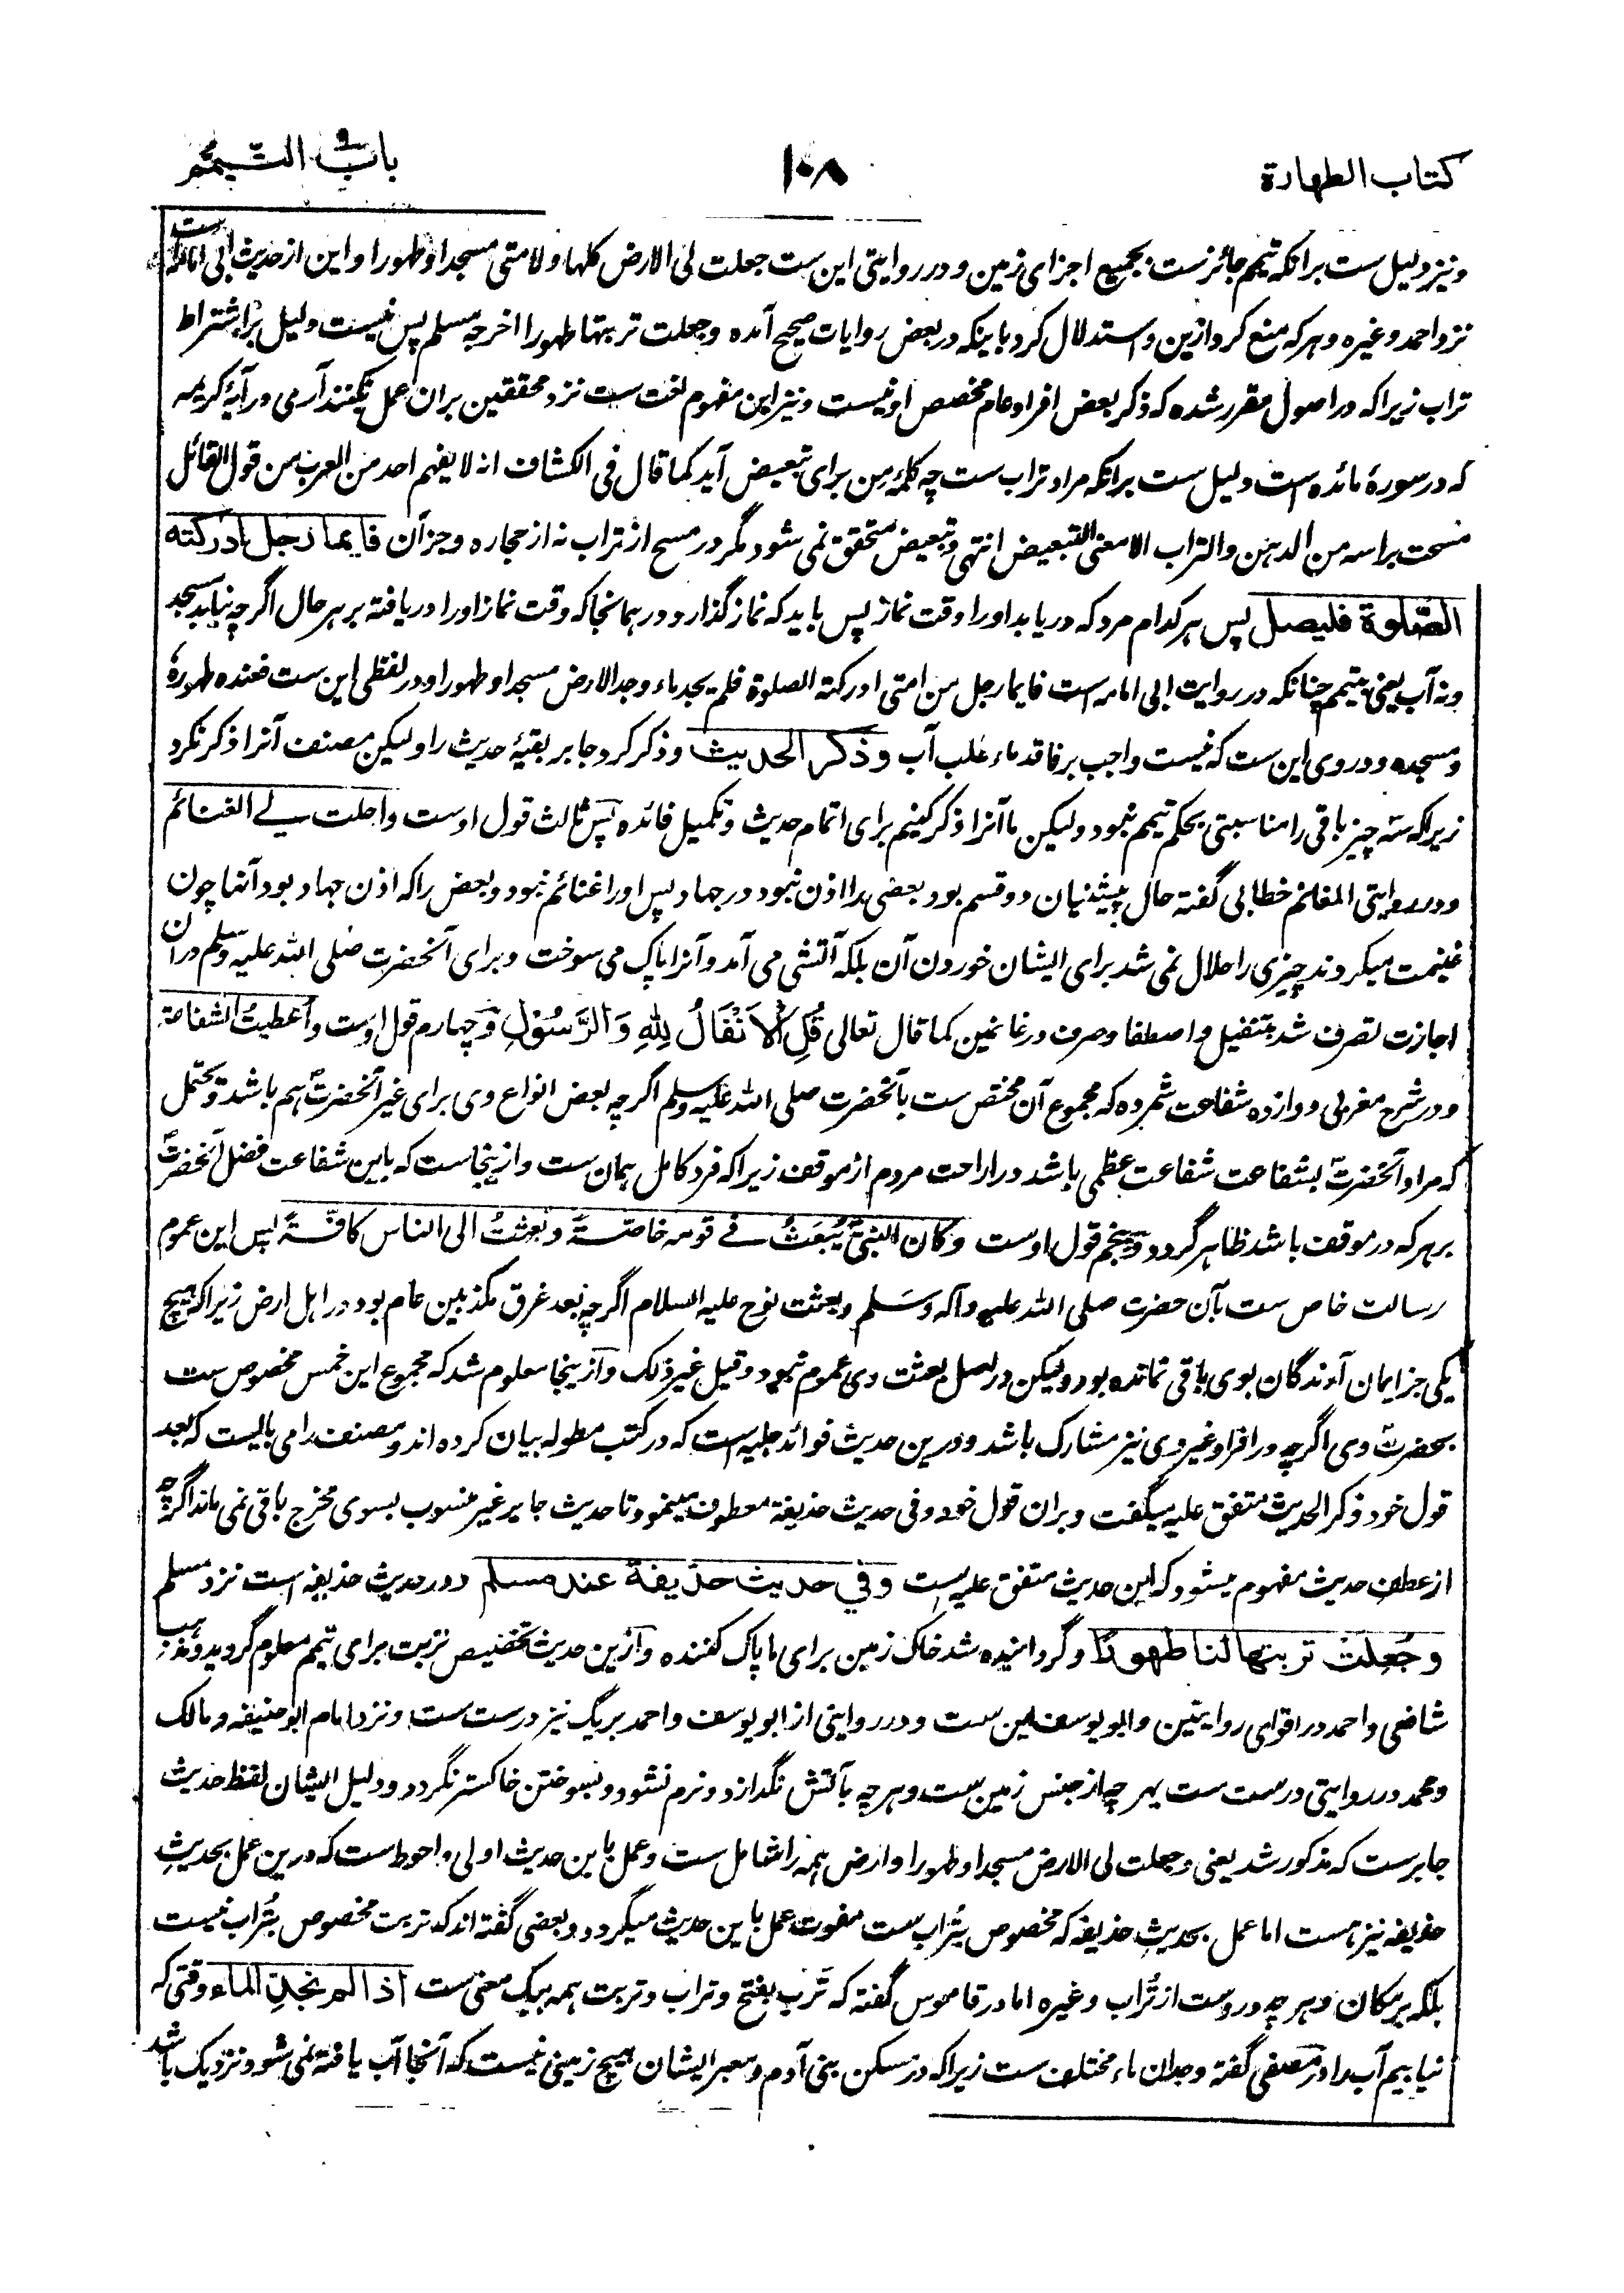 كتاب الطهارة
١٠٨
باب التيمم
ونیز دلیل ست برانکه تیمم جائز ست بجمیع اجزای زمین و در روایتی این ست جعلت لی الارض کلها ولامتی مسجدا وطهورا و این از حدیث ابی امامه است
نزد احمد وغیره و هر که منع کرد ازین و استدلال کرد باینکه در بعض روایات صحیح آمده وجعلت تربتها طهورا اخرجه مسلم پس نیست دلیل بر اشتراط
تراب زیرا که در اصول مقرر شده که ذکر بعض افراد عام مخصص او نیست ونیز این مفهوم لقب ست نزد محققین بران عمل نکنند آری در آیهٔ کریمه
که در سورهٔ مائده است دلیل ست برانکه مراد تراب ست چه کلمهٔ من برای تبعیض آید کما قال فی الکشاف انه لا یفهم احد من العرب من قول القائل
مسحت براسه من الدهن والتراب الا معنی التبعیض انتهی و تبعیض متحقق نمی شود مگر در مسح از تراب نه از حجاره و جز آن فایما رجل ادرکته
الصّلوة فلیصل پس هر کدام مرد که دریابد او را وقت نماز پس باید که نماز گذارد در همانجا که وقت نماز او را دریافته بر هر حال اگرچه نیابد مسجد
ونه آب یعنی بتیمم چنانکه در روایت ابی امامه است فایما رجل من امتی ادرکته الصلوة فلم یجد ماء وجد الارض مسجدا وطهورا و در لفظی این ست فعنده طهورهٔ
ومسجده و در وی این ست که نیست واجب بر فاقد ماء طلب آب وذكر الحديث و ذکر کرد جابر بقیهٔ حدیث را ولیکن مصنف آنرا ذکر نکرد
زیرا که سه چیز باقی را مناسبتی بحکم تیمم نبود ولیکن ما آنرا ذکر کنیم برای اتمام حدیث و تکمیل فائده پس ثالث قول اوست واحلت لی الغنائم
و در روایتی المغانم خطابی گفته حال پیشینیان دو قسم بود بعضی را اذن نبود در جهاد پس او را غنائم نبود و بعض را که اذن جهاد بود آنها چون
غنیمت میکردند چیزی را حلال نمی شد برای ایشان خوردن آن بلکه آتشی می آمد و آنرا پاک می سوخت و برای آنحضرت صلی الله علیه وسلم دران
اجازت تصرف شد بتنفیل و اصطفا و صرف در غانمین کما قال تعالی قُلِ الْاَنْفَالُ لِلّٰهِ وَالرَّسُوْلِ و چهارم قول اوست واُعطیتُ الشفاعة
و در شرح مغربی دوازده شفاعت شمرده که مجموع آن مختص ست بآنحضرت صلی الله علیه وسلم اگرچه بعض انواع وی برای غیر آنحضرتؐ هم باشد و محتمل
که مراد آنحضرتؐ بشفاعت شفاعت عظمی باشد در اراحت مردم از موقف زیرا که فرد کامل همان ست و ازینجاست که باین شفاعت فضل آنحضرتؐ
بر هر که در موقف باشد ظاهر گردد و پنجم قول اوست وكان النبیُّ یُبعَثُ فی قومه خاصّةً وبُعثتُ الی الناس کافّةً پس این عموم
رسالت خاص ست بآن حضرت صلی الله علیه وآله وسلم و بعثت نوح علیه السلام اگرچه بعد غرق مکذبین عام بود در اهل ارض زیرا که هیچ
یکی جز ایمان آرندگان بوی باقی نمانده بود ولیکن در اصل بعثت وی عموم نبود وقیل غیر ذلک و ازینجا معلوم شد که مجموع این خمس مخصوص ست
بحضرتؐ وی اگرچه در افراد غیر وی نیز مشارک باشد و درین حدیث فوائد جلیله است که در کتب مطوله بیان کرده اند و مصنف را می بایست که بعد
قول خود ذکر الحدیث متفق علیه میگفت و بران قول خود وفی حدیث حذیفة معطوف مینمود تا حدیث جابر غیر منسوب بسوی مخرج باقی نمی ماند اگرچه
از عطف حدیث مفهوم میشود که این حدیث متفق علیه است وفي حديث حذيفة عند مسلم و در حدیث حذیفه است نزد مسلم
وجُعِلَتْ تربتها لنا طهورًا و گردانیده شد خاک زمین برای ما پاک کننده و ازین حدیث تخصیص تربت برای تیمم معلوم گردید و مذهب
شافعی و احمد در اقوای روایتین و ابو یوسف همین ست و در روایتی از ابو یوسف و احمد بریگ نیز درست ست و نزد امام ابو حنیفه و مالک
و محمد در روایتی درست ست بهر چه از جنس زمین ست و هر چه بآتش نگدازد و نرم نشود و بسوختن خاکستر نگردد و دلیل ایشان لفظ حدیث
جابر ست که مذکور شد یعنی وجعلت لی الارض مسجدا وطهورا و ارض همه را شامل ست و عمل باین حدیث اولی و احوط ست که درین عمل بحدیثِ
حذیفه نیز هست اما عمل بحدیثِ حذیفه که مخصوص بتُراب ست مفوت عمل باین حدیث میگردد و بعضی گفته اند که تربت مخصوص بتُراب نیست
بلکه هر مکان و هر چه دروست از تُراب وغیره اما در قاموس گفته که تَرب بفتح و تراب و تربت همه بیک معنی ست اذا لم نجد الماء وقتی که
نیابیم آب را در مصفی گفته وجدان ماء مختلف ست زیرا که در مسکن بنی آدم و معبر ایشان هیچ زمینی نیست که آنجا آب یافته نمی شود نزدیک باشد